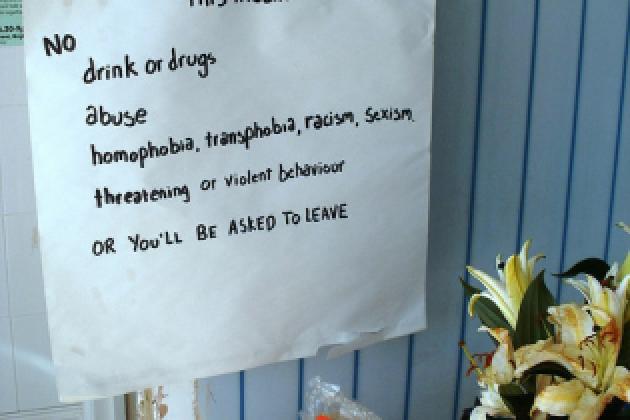 NO
drink or drugs
abuse
homophobia, transphobia, racism, Sexism,
threatening or violent behaviour
OR YOU'LL BE ASKED TO LEAVE